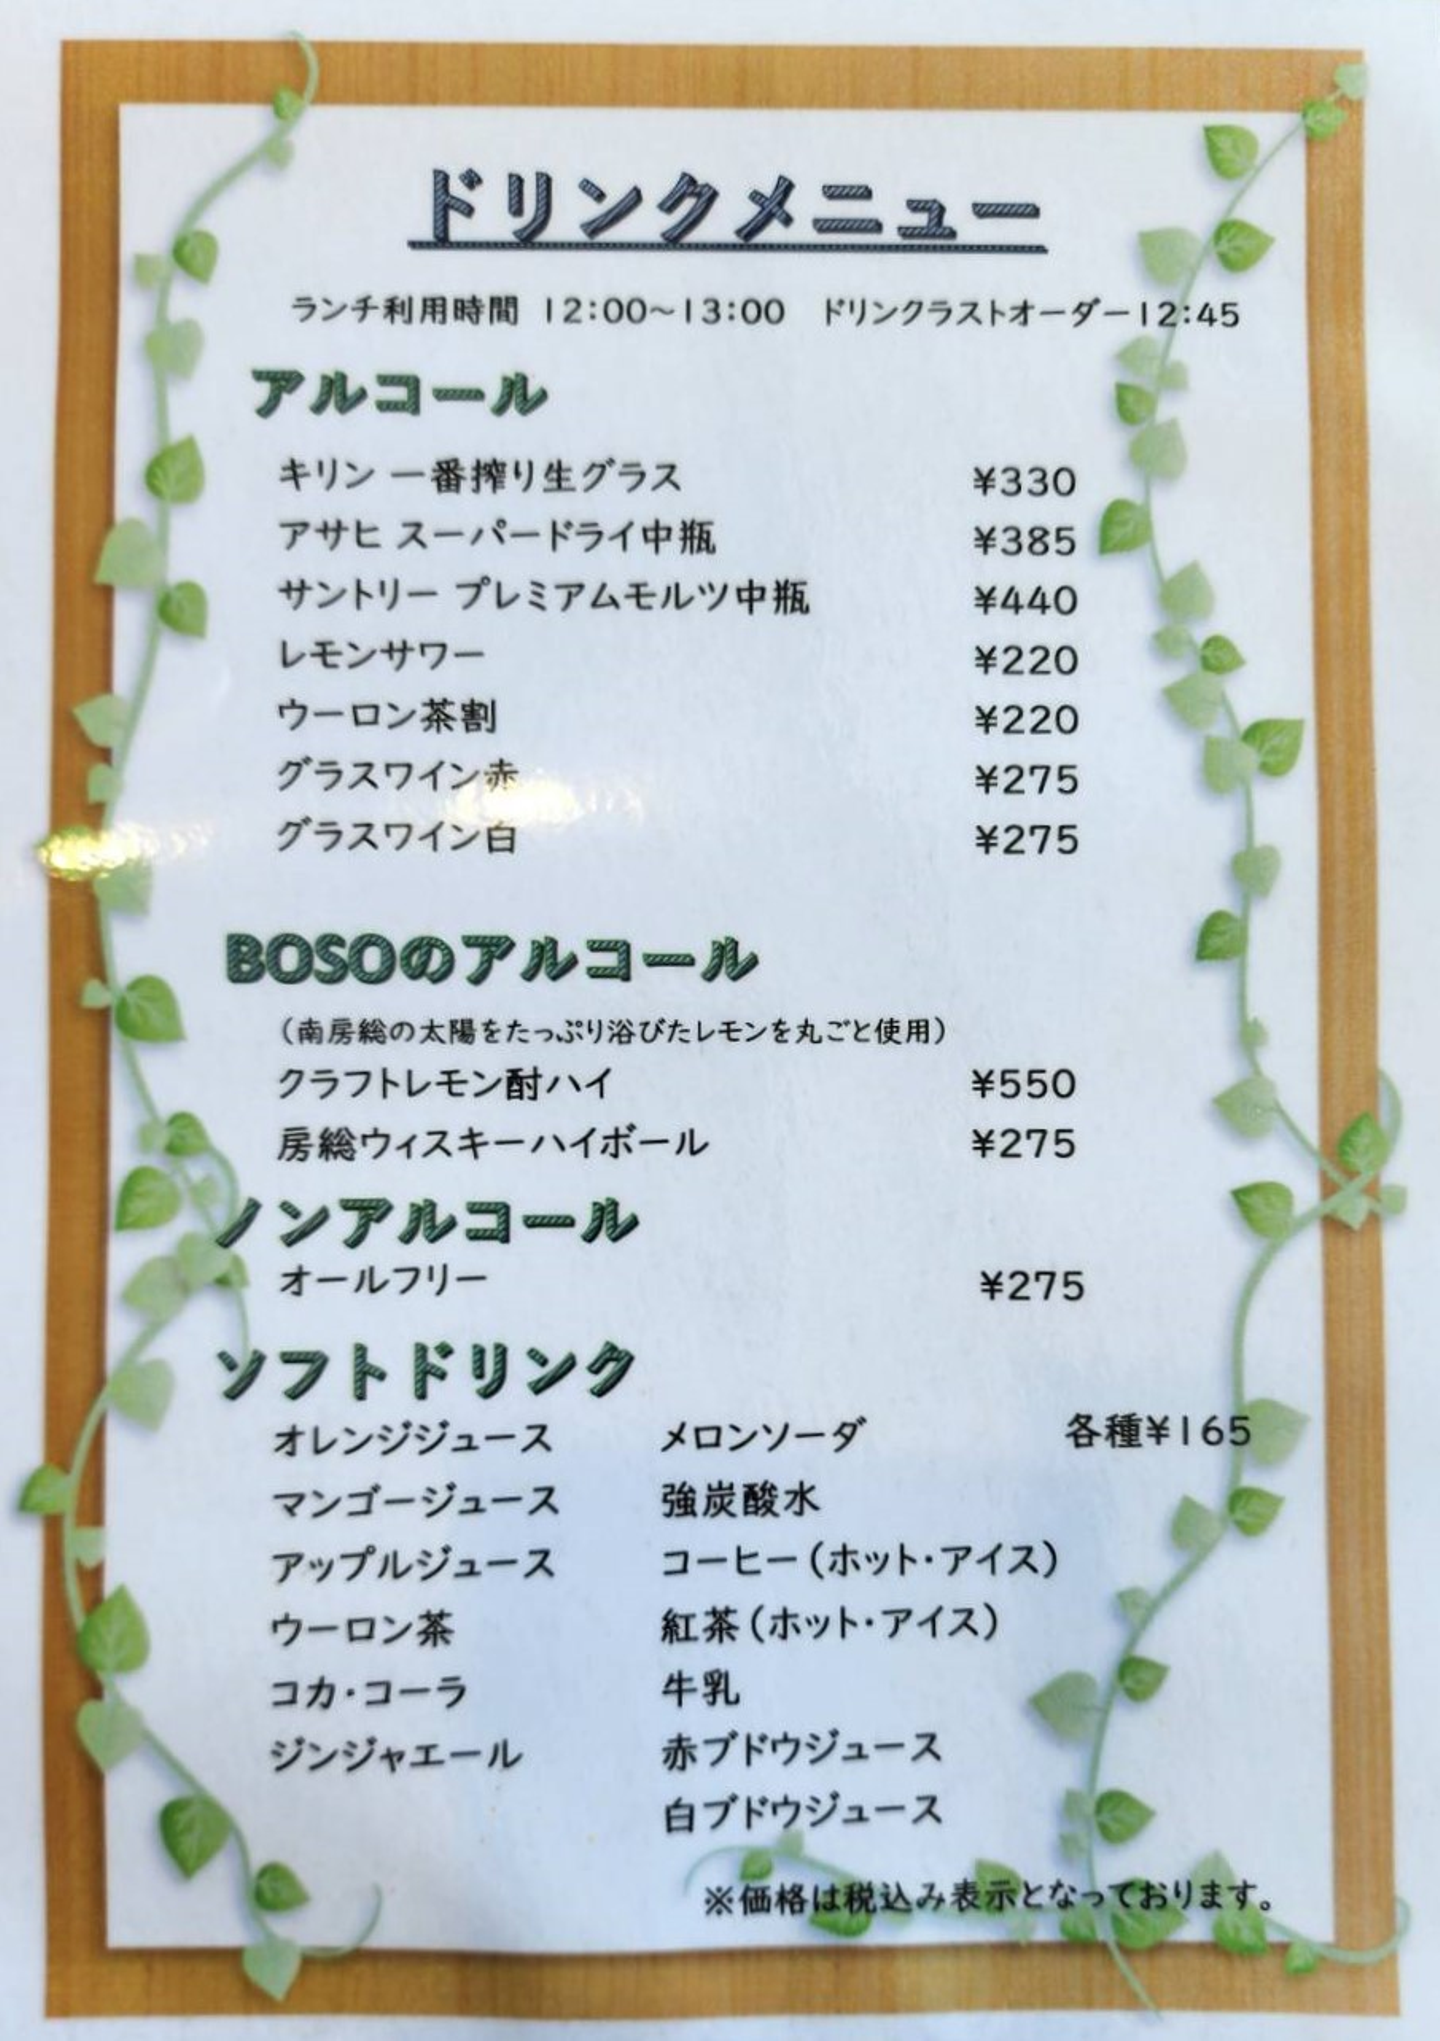 ドリンクメニュー
ランチ利用時間 12:00～13:00　ドリンクラストオーダー12:45
アルコール
キリン 一番搾り生グラス ¥330
アサヒ スーパードライ中瓶 ¥385
サントリー プレミアムモルツ中瓶 ¥440
レモンサワー ¥220
ウーロン茶割 ¥220
グラスワイン赤 ¥275
グラスワイン白 ¥275
BOSOのアルコール
（南房総の太陽をたっぷり浴びたレモンを丸ごと使用）
クラフトレモン酎ハイ ¥550
房総ウィスキーハイボール ¥275
ノンアルコール
オールフリー ¥275
ソフトドリンク
オレンジジュース メロンソーダ 各種¥165
マンゴージュース 強炭酸水
アップルジュース コーヒー（ホット・アイス）
ウーロン茶 紅茶（ホット・アイス）
コカ・コーラ 牛乳
ジンジャエール 赤ブドウジュース
白ブドウジュース
※価格は税込み表示となっております。